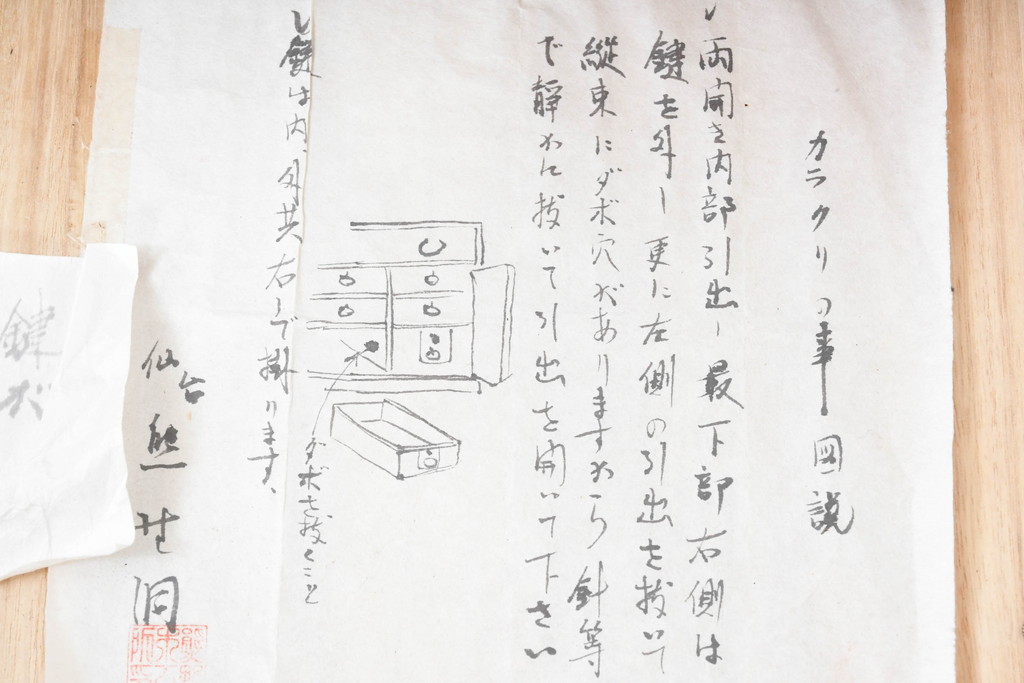 カラクリの事図説
〆両開き内部引出し最下部右側は
鍵を外し更に左側の引出を抜いて
縦束にダボ穴がありますから針等
で静かに抜いて引出を開いて下さい
ダボを抜くこと
〆鍵は内、外共右しで掛ります、
仙台
熊野洞
鍵が